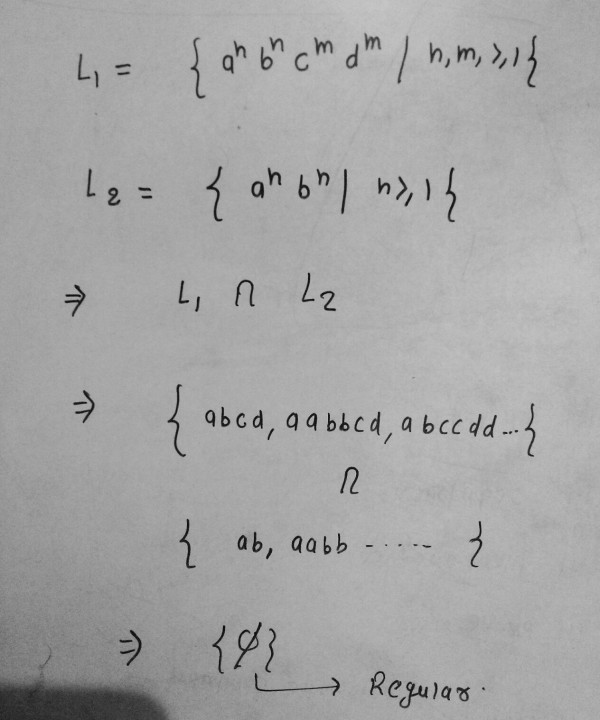 L₁ = { aⁿ bⁿ cᵐ dᵐ / n,m, ≥,1{
L₂ = { aⁿ bⁿ | n≥,1{
⇒ L₁ ∩ L₂
⇒ { abcd, aabbcd, abccdd...{
∩
{ ab, aabb ------ }
⇒ {∅}
→ Regular.